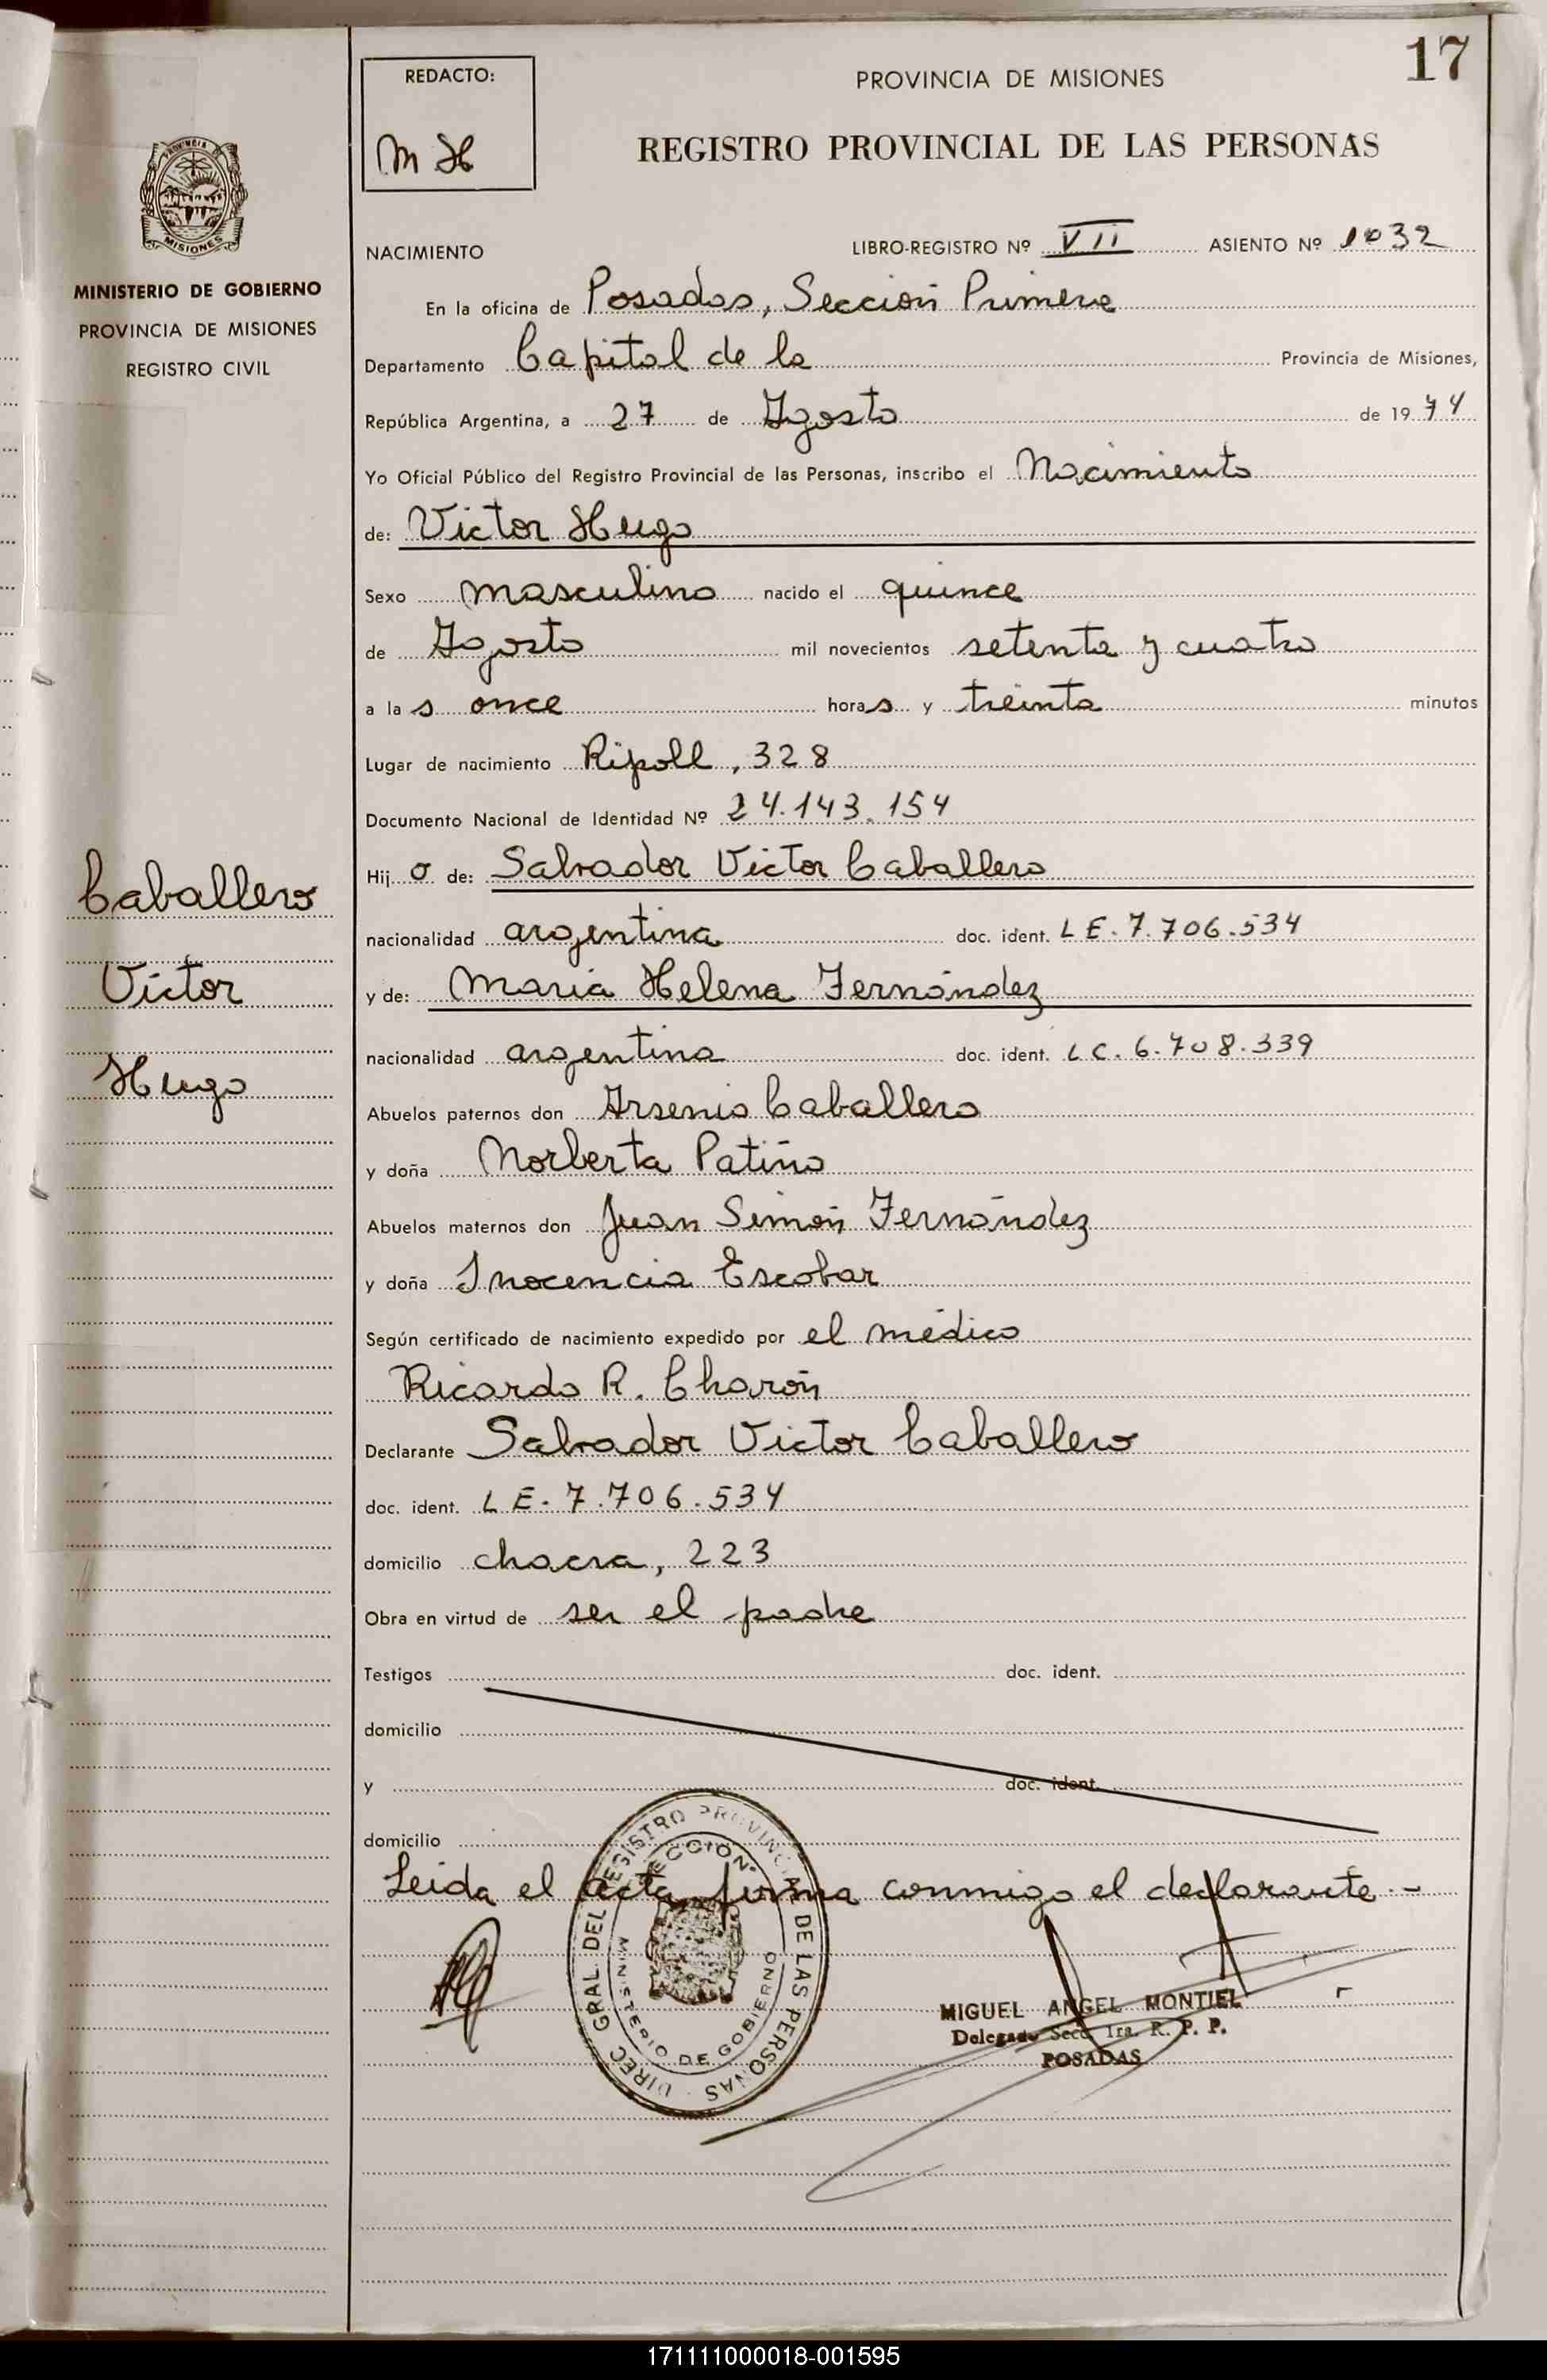 17
REDACTO:
M H
PROVINCIA DE MISIONES
REGISTRO PROVINCIAL DE LAS PERSONAS
PROVINCIA
MISIONES
MINISTERIO DE GOBIERNO
PROVINCIA DE MISIONES
REGISTRO CIVIL
Caballero
Víctor
Hugo
NACIMIENTO LIBRO-REGISTRO Nº VII ASIENTO Nº 1032
En la oficina de Posadas, Sección Primera
Departamento Capital de la Provincia de Misiones,
República Argentina, a 27 de Agosto de 1974
Yo Oficial Público del Registro Provincial de las Personas, inscribo el Nacimiento
de: Víctor Hugo
Sexo masculino nacido el quince
de Agosto mil novecientos setenta y cuatro
a la s once hora s y treinta minutos
Lugar de nacimiento Ripoll, 328
Documento Nacional de Identidad Nº 24.143.154
Hij o de: Salvador Víctor Caballero
nacionalidad argentina doc. ident. LE. 7.706.534
y de: María Helena Fernández
nacionalidad argentina doc. ident. LC. 6.708.339
Abuelos paternos don Arsenio Caballero
y doña Norberta Patiño
Abuelos maternos don Juan Simón Fernández
y doña Inocencia Escobar
Según certificado de nacimiento expedido por el médico
Ricardo R. Charón
Declarante Salvador Víctor Caballero
doc. ident. LE. 7.706.534
domicilio chacra, 223
Obra en virtud de ser el padre
Testigos doc. ident.
domicilio
y doc. ident.
domicilio
Leída el acta firma conmigo el declarante.-
DIREC. GRAL. DEL REGISTRO PROVINCIAL DE LAS PERSONAS
MINISTERIO DE GOBIERNO
MIGUEL ANGEL MONTIEL
Delegado Secc. 1ra. R. P. P.
POSADAS
171111000018-001595